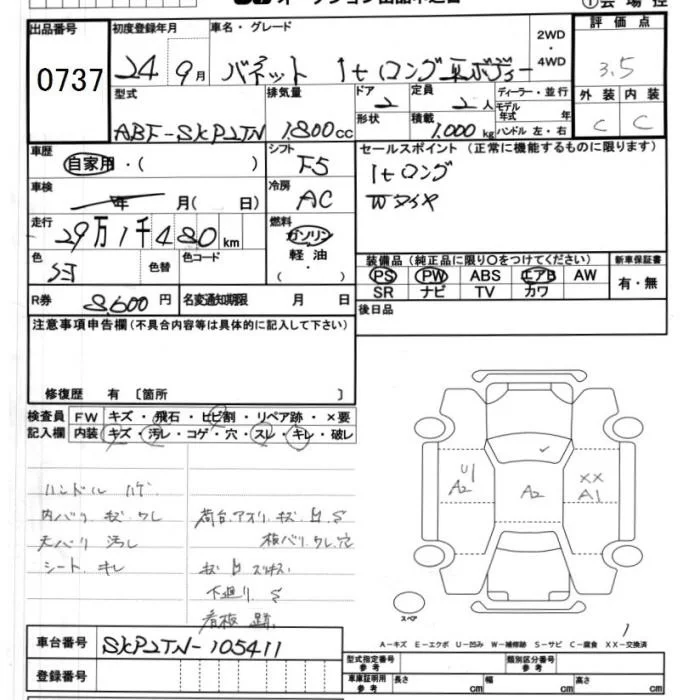 オークション出品申込書
①会場控
出品番号
0737
初度登録年月
24 9月
車名・グレード
バネット 1tロング 平ボデー
2WD
・
4WD
評価点
3.5
型式
ABF-SKP2TN
排気量
1,800cc
ドア
2
定員
2人
形状
積載
1,000kg
ディーラー・並行
モデル年式 年
ハンドル 左・右
外装
C
内装
C
車歴
自家用・( )
シフト
F5
セールスポイント (正常に機能するものに限ります)
1tロング
Wタイヤ
車検
年 月( 日)
冷房
AC
走行
29万1千480km
燃料
ガソリン
軽油
・
( )
色
色替
色コード
装備品 (純正品に限り○をつけてください)
新車保証書
PS PW ABS エアB AW
SR ナビ TV カワ
有・無
R券
8,600円
名変通知期限 月 日
後日品
注意事項申告欄(不具合内容等は具体的に記入して下さい)
修復歴 有 〔箇所 〕
検査員
記入欄
FW キズ・飛石・ヒビ割・リペア跡・×要
内装 キズ・汚レ・コゲ・穴・スレ・キレ・破レ
ハンドル ハゲ
内バリ キズ ワレ
天バリ 汚レ
シート キレ
荷台 アオリ キズ 凹 S
板バリ ワレ 穴
キズ 凹 スリキズ
下廻り S
看板跡
U1
A2
A2
XX
A1
スペア
1
A-キズ E-エクボ U-凹み W-補修跡 S-サビ C-腐食 XX-交換済
車台番号
SKP2TN-105411
登録番号
型式指定番号
参考
類別区分番号
参考
車庫証明用
参考
長さ cm
幅 cm
高さ cm